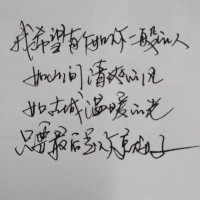 我希望有个如你一般的人
如山间清爽的风
如古城温暖的光
只要最后是你就好